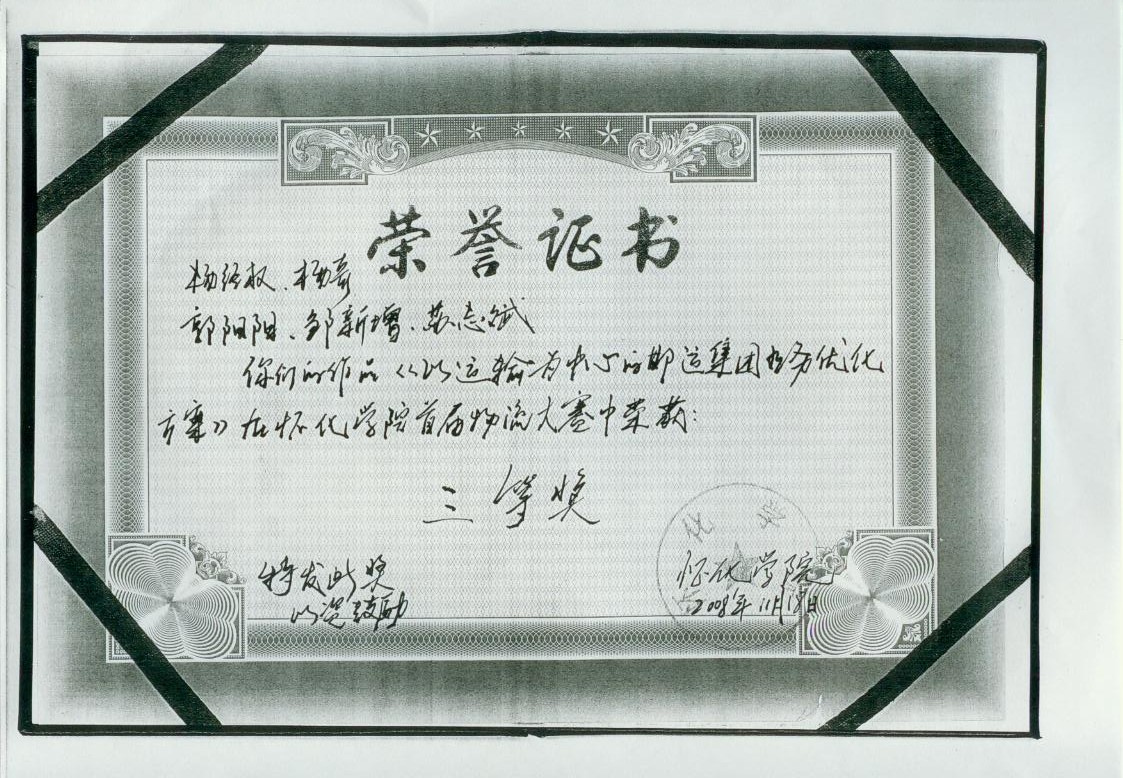 荣誉证书
杨经权、杨奇
郭阳阳、邹新增、苏志斌
你们的作品《以运输为中心的邮运集团业务优化
方案》在怀化学院首届物流大赛中荣获：
三等奖
特发此奖
以资鼓励
怀化学院
2008年11月18日